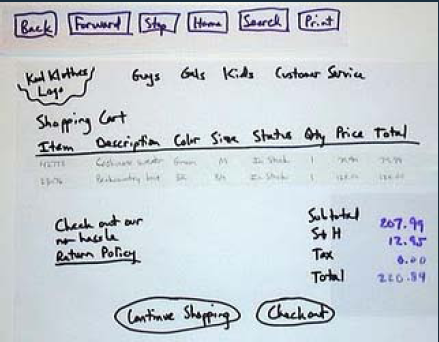 Back Forward Stop Home Search Print
Kool Klothes Logo Guys Gals Kids Customer Service
Shopping Cart
Item Description Color Size Status Qty Price Total
Sweater Green M In Stock 1
In Stock 1
Check out our
no hassle
Return Policy
Subtotal 207.99
S+H 12.95
Tax 0.00
Total
Continue Shopping Checkout